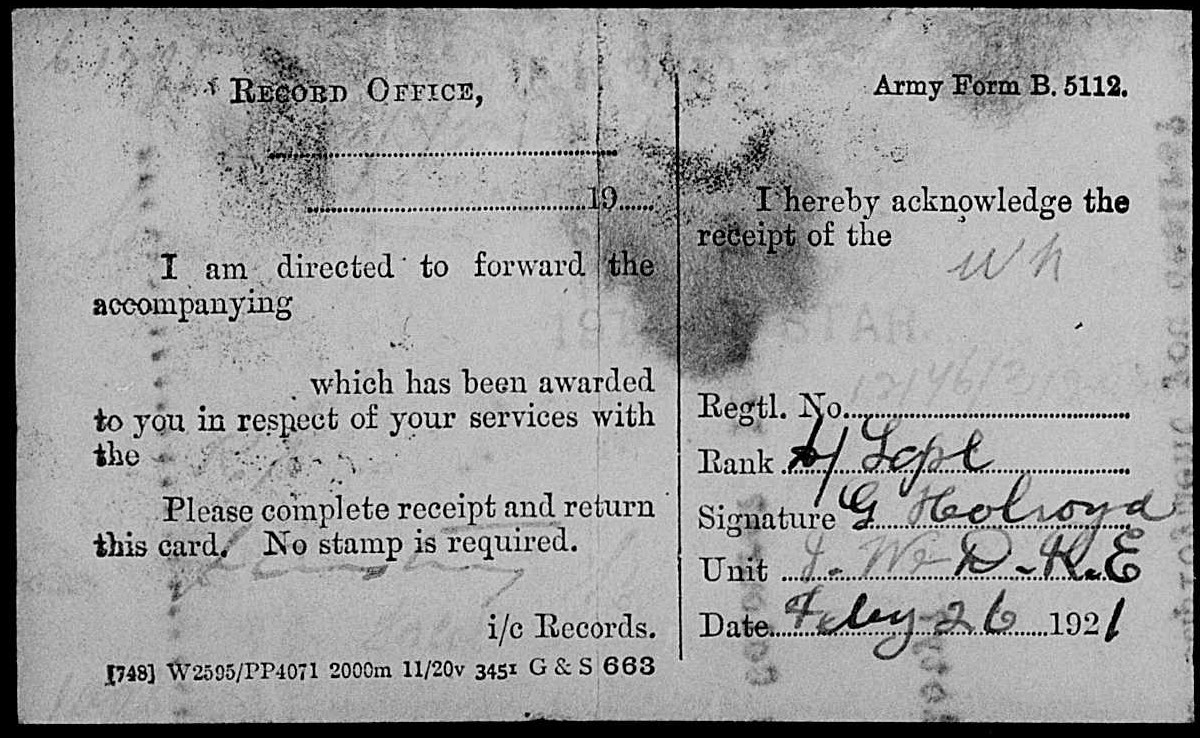 RECORD OFFICE,
19
I am directed to forward the
accompanying
which has been awarded
to you in respect of your services with
the
Please complete receipt and return
this card. No stamp is required.
i/c Records.
[748] W2595/PP4071 2000m 11/20v 3451 G & S 663
Army Form B. 5112.
I hereby acknowledge the
receipt of the
Regtl. No.
Rank Lcpl
Signature G Holroyd
Unit D.R.E
Date Feby 26 1921